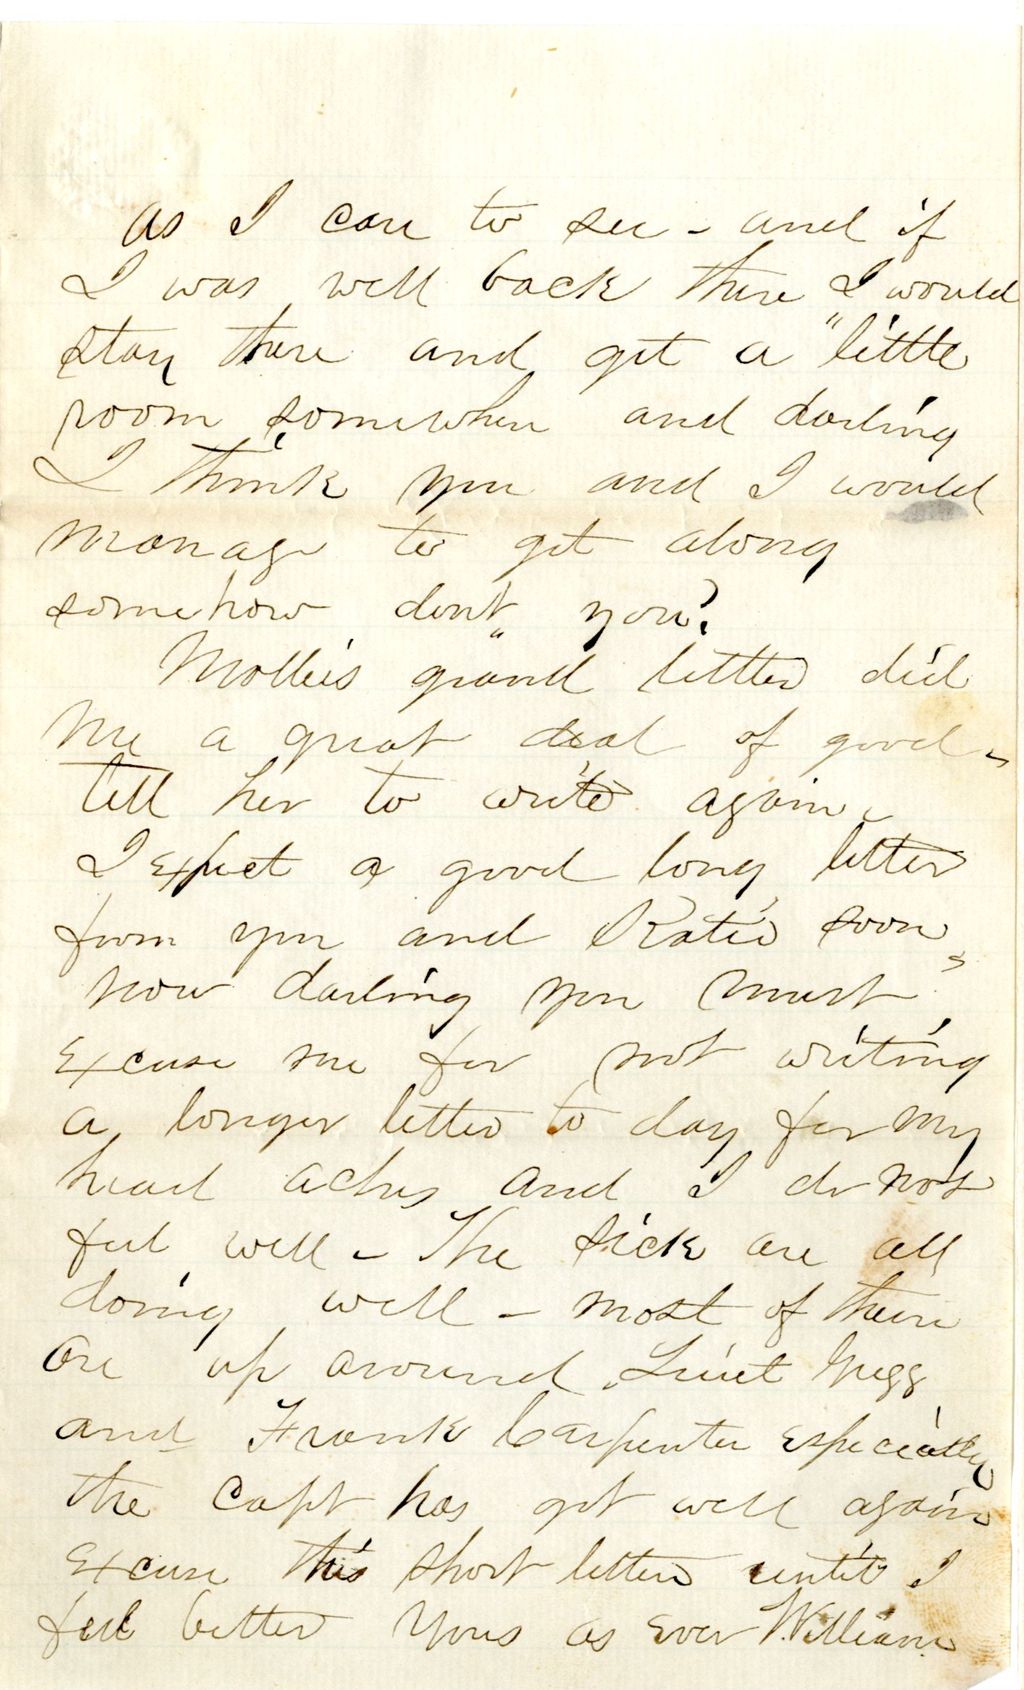 as I care to see - and if
I was well back there I would
stay there and get a "little
room somewhere and darling
I think you and I would
manage to get along
somehow dont" you?
Mollies grand letter did
me a great deal of good -
tell her to write again -
I expect a good long letter
from you and Katie soon,
now darling you must
excuse me for not writing
a longer letter to day for my
head aches and I do not
feel well - The sick are all
doing well - most of them
are up around, Lieut Gregg
and Frank Carpenter especially
the Capt has got well again
Excuse this short letter until I
feel better Yours as Ever William